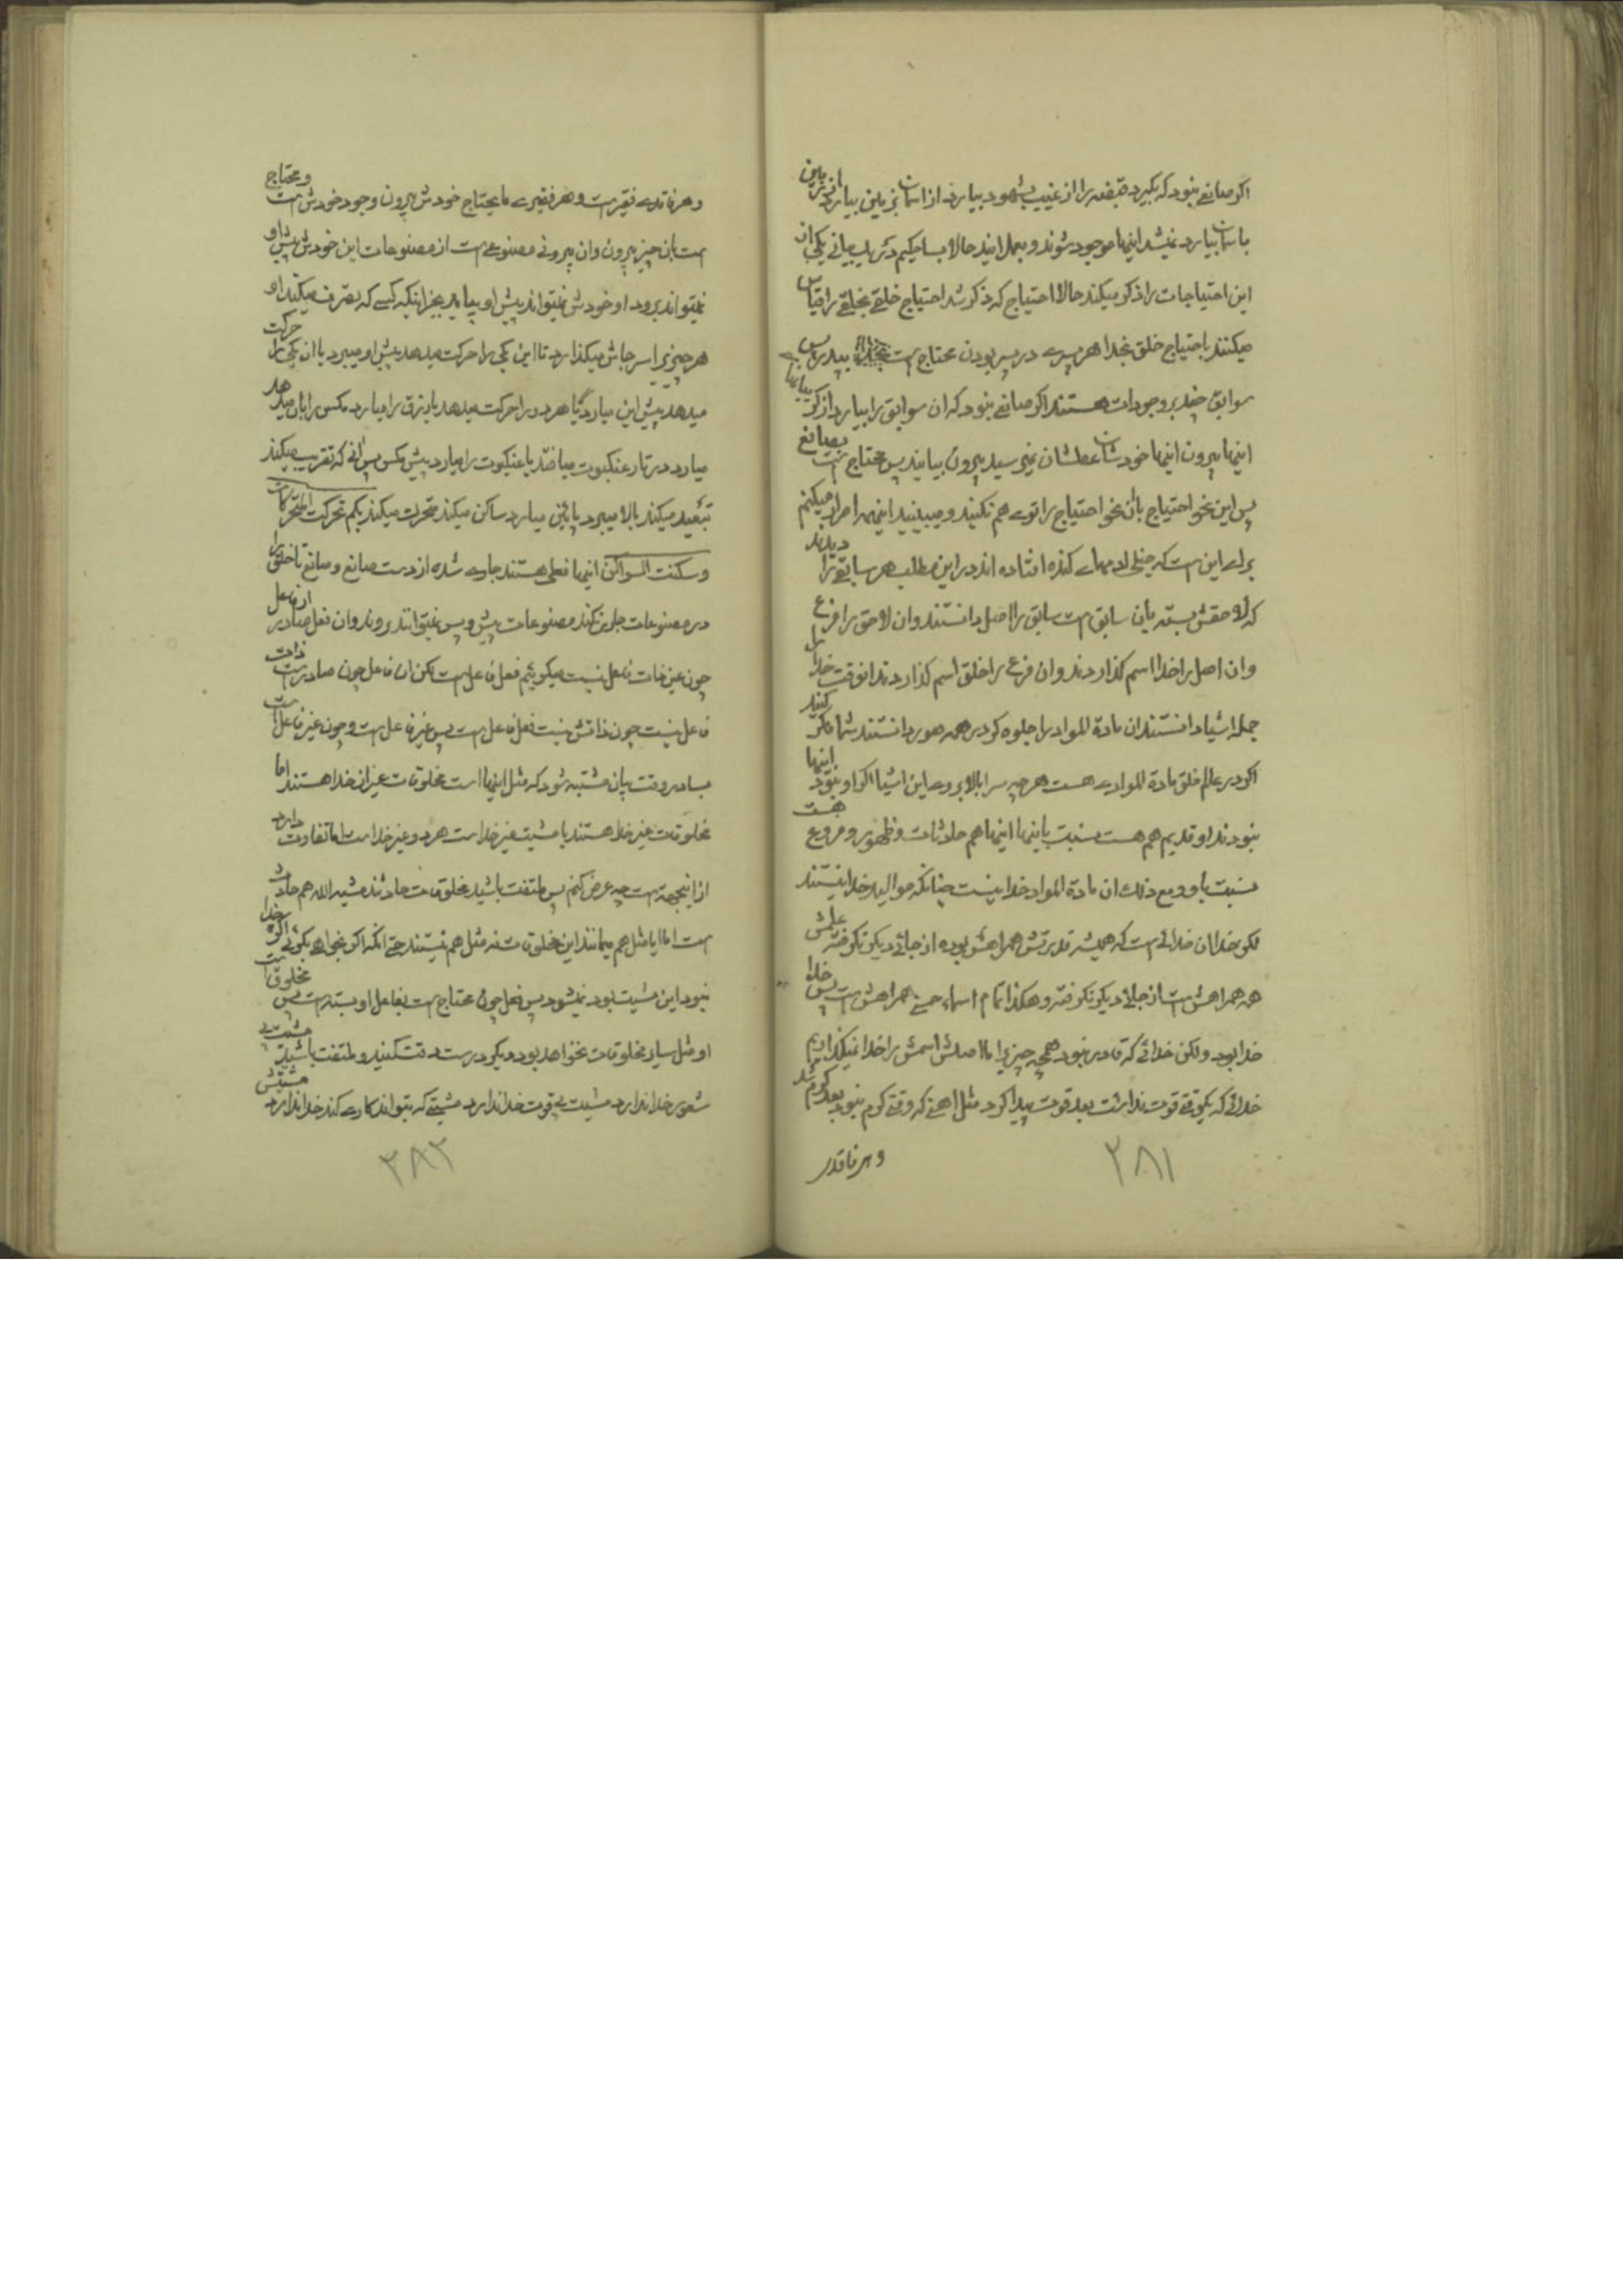 اکر صانعی نبود که بکیرد قبضه را از غیب بشهود بیارد از اسمان بزمین بیارد از زمین
باسمان بیارد نمیشد اینها موجود شوند و بعمل ایند حالا بسا حکیم در یک بیانی یکی از
این احتیاجات را ذکر میکند حالا احتیاج که ذکر شد احتیاج خلقی بخلقی را قیاس
میکنند باحتیاج خلق بخدا هر پسری در پسر بودن محتاج است بپدر پس
سوابق جفدر وجودات هستند اکر صانعی نبود که ان سوابق را بیارد از کو بیایند
اینها بیرون اینها خودشان عقلشان نمیرسید بیرون بیایند پس محتاج است بصانع
پس این نحو احتیاج بان نحو احتیاج را توی هم نکنید و میبینید اینهمه اصرار میکنم
برای این است که خیلی ادمهای کنده افتاده اند در این مطلب هر سابقی را دیدند
که لاحقش بسته بان سابق است سابق را اصل دانستند وان لاحق را فرع
وان اصل را خدا اسم کذاردند وان فرع را خلق اسم کذاردند انوقت خدا را
جمله اشیاء دانستند ان مادة المواد را جلوه کر در همه صور دانستند شما فکر کنید
اکر در عالم خلق مادة الموادی هست هرچه سرابالا بروی این اشیا اکر او نبود اینها
نبودند او قدیم هم هست نسبت باینها اینها هم حادثات و ظهور و فروع هست
نسبت باو و مع ذلک ان مادة المواد خدا نیست چنانکه موالید خدا نیستند
لکن خدا ان خدائی است که همیشه قدرتش همراهش بوده از جائی دیکر نکرفته علمش
همه همراهش است از جائی دیکر نکرفته و هکذا تمام اسماء حسنی همراهش است پس خدا
خدا بود ولکن خدائی که قادر نبود همچه چیزیرا ما اصلش اسمش را خدا نمیکذاریم
خدائی که یکوقتی قوت نداشت بعد قوت پیدا کرد مثل اهنی که وقتی کرم نبود بعد کرم شد
و هر فاقدی
۲۸۱
و هر فاقدی فقیر است و هر فقیری مایحتاج خودش بیرون وجود خودش است و محتاج
است بان چیز بیرون وان بیرونی مصنوعی است از مصنوعات این خودش پیش او
نمیتواند برود او خودش نمیتواند پیش او بیاید بجز اینکه کسی که تصرف میکند او
هر چیزیرا سر جاش میکذارد تا این یکی را حرکت میدهد پیش او میبرد یا ان یکی را حرکت
میدهد پیش این میارد یا هر دو را حرکت میدهد یا رزق را میارد مکس را بال میدهد
میارد در تار عنکبوت میاندازد یا عنکبوت را میارد پیش مکس پس انی که تقریب میکند
تبعید میکند بالا میبرد پائین میارد ساکن میکند متحرک میکند بکم تحرکت المتحرکات
و سکنت السواکن اینها فعلی هستند جاری شده از دست صانع و صانع تا خلق را
در مصنوعات جاری نکند مصنوعات پیش و پس نمیتوانند بروند وان فعل صادر از فاعل
چون عین ذات فاعل نیست میکوئیم فعل فاعل است لکن ان فاعل چون صادر است ذات
فاعل نیست چون ذاتش نیست فعل فاعل است پس غیر فاعل است و چون غیر فاعل است
بسا در وقت بیان مشتبه شود که مثل اینها است مخلوقات غیر از خدا هستند اما
مخلوقات غیر خدا هستند یا مشیت غیر خدا است هر دو غیر خدا است اما تفاوت دارد
از اینجهت است چه عرض کنم پس ملتفت باشید مخلوقات حادثند مشیة الله هم حادث
است اما ایا مثل هم میمانند این مخلوقات نه مثل هم نیستند حتی انکه اکر بخواهی بکوئی اکر خدا
نبود این مشیت بود نمیشود پس فعل چون محتاج است بفاعل او بسته است پس مخلوق است
او مثل سایر مخلوقات نخواهد بود دیکر درست دقت کنید و ملتفت باشید مشیت بی
شعور خدا ندارد مشیت بی قوت خدا ندارد مشیتی که نتواند کاری کند خدا ندارد مشیتش
۲۸۲